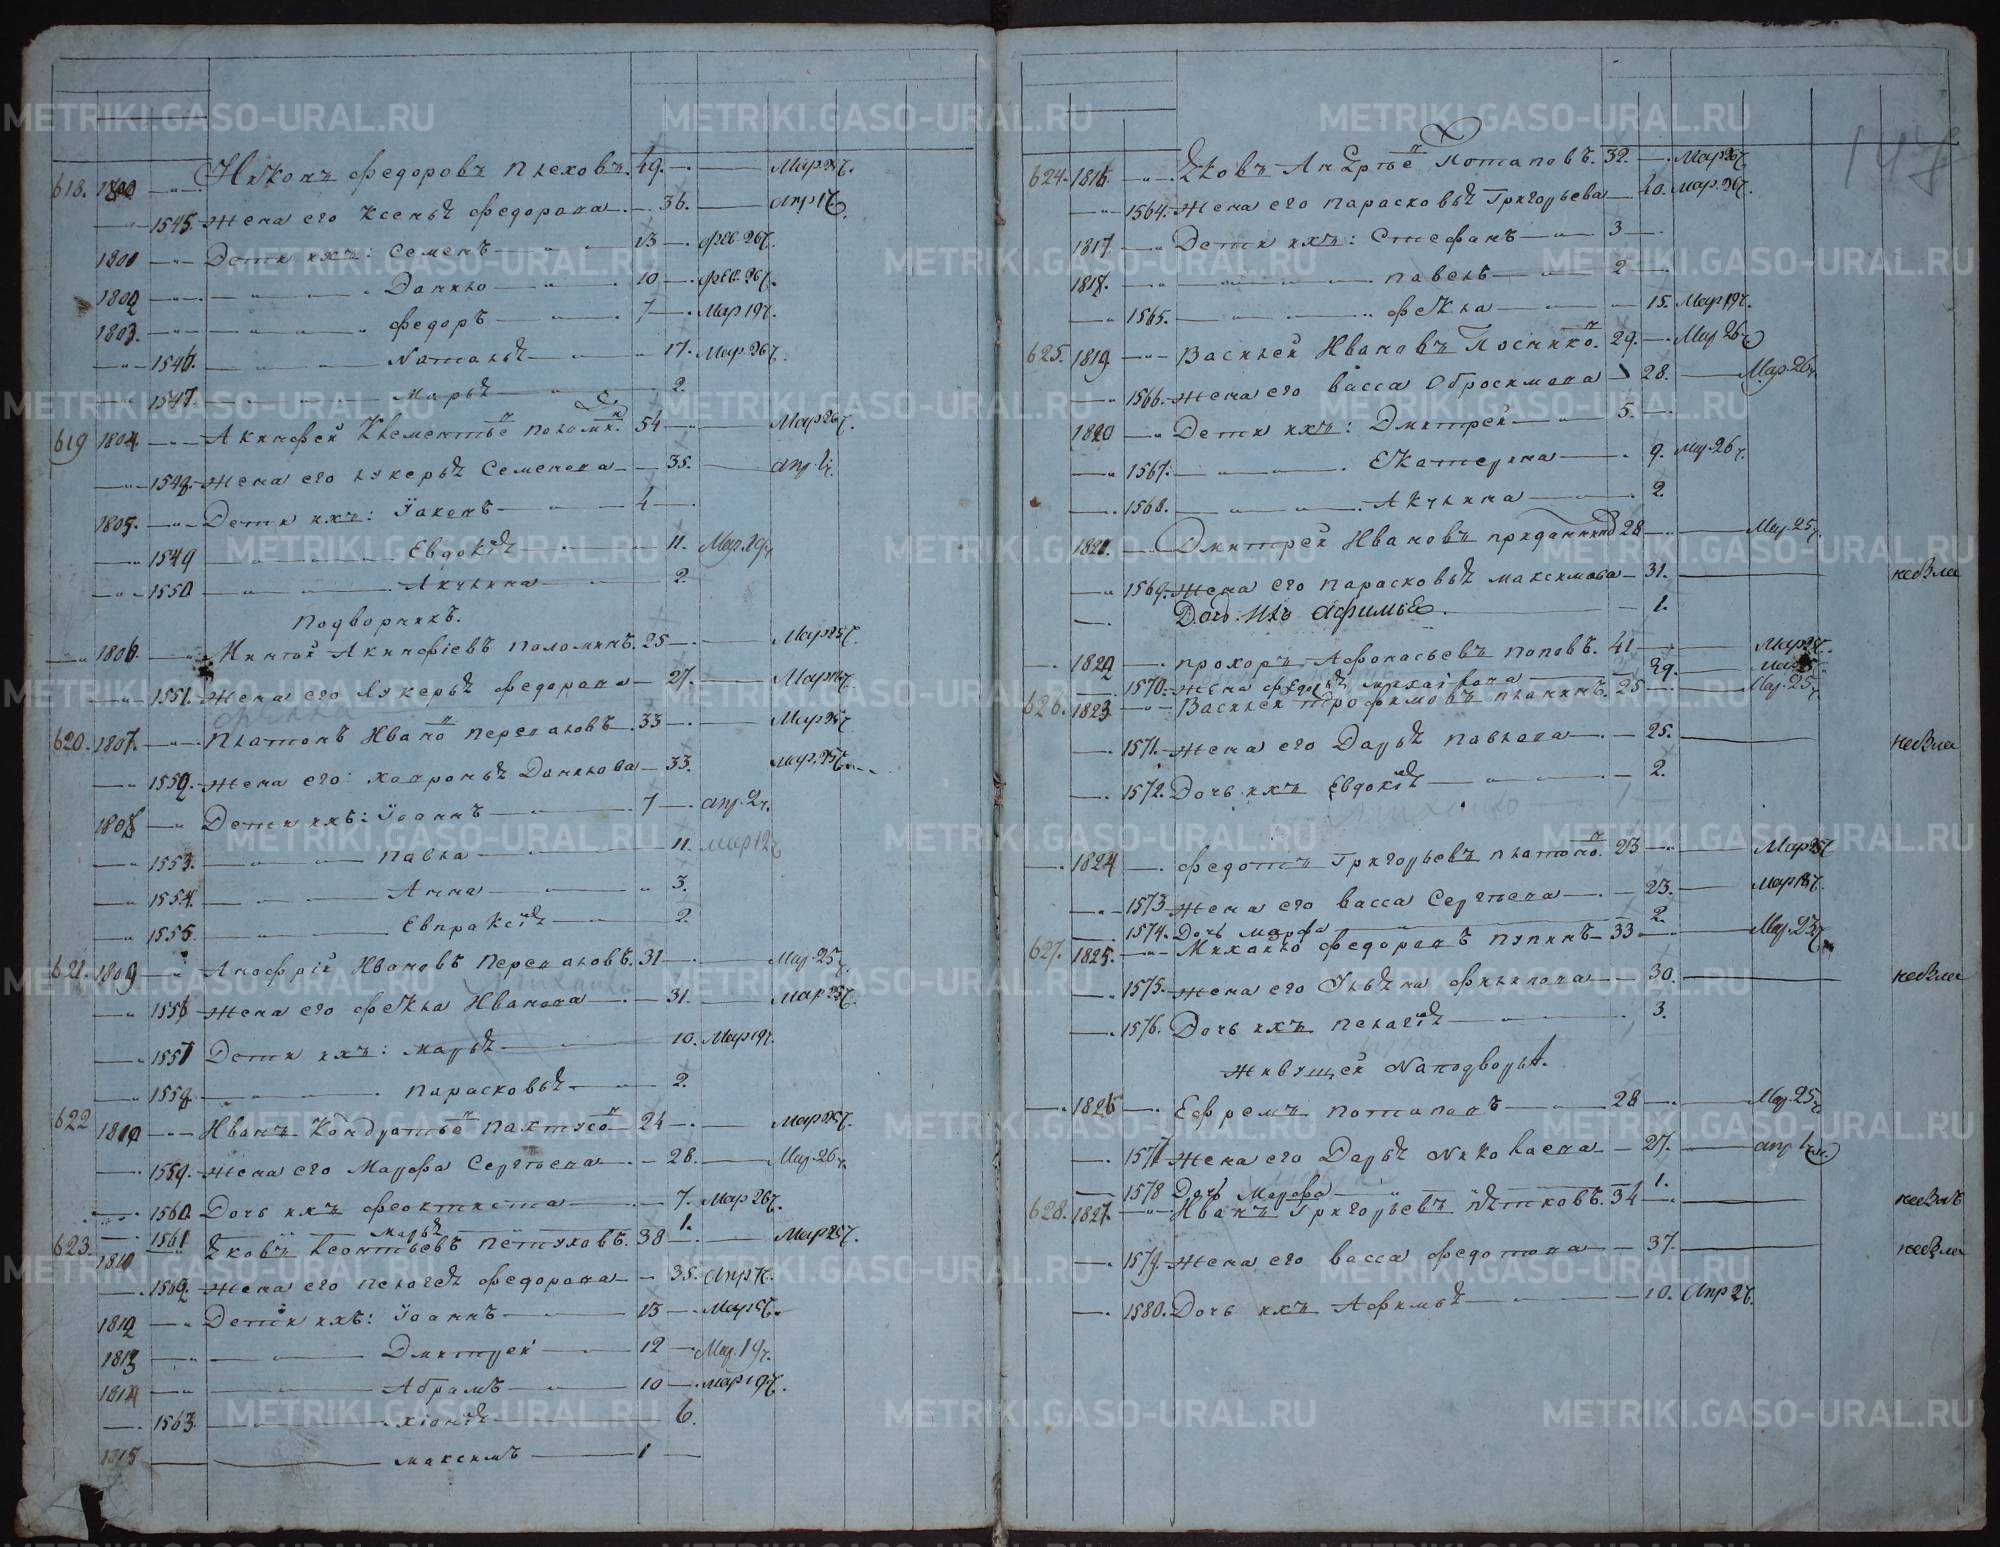 618. 1800 Никонъ Федоровъ Плеховъ. 49. Мар. 25ч.
1545. Жена его Ксенья Федорова 36. Апр. 1ч.
1801 Дети ихъ: Семенъ 13 Фев. 26ч.
1802 Данило 10 Фев. 26ч.
1803. Федоръ 7 Мар 19ч.
1546. Наталья 17. Мар. 26ч.
1547. Марья 2.
619 1804. Акинфей Клементьев 54 Мар 26ч.
1548. Жена его Лукерья Семенова 35. Апр. 1ч.
1805. Дети ихъ: Iаковъ 4
1549 Евдокия 11. Мар. 19ч
1550 Акулина 2.
Подворникъ.
1806. Акинфiевъ Поломинъ. 25 Мар 25ч.
1551. Жена его Лукерья Федорова 27. Мар
620. 1807. Платонъ Ивано Переваловъ. 33
1552. Жена его: Хавронья Данилова 33. Мар. 25ч.
1808 Дети ихъ: Iоаннъ 7 Апр. 2ч.
1553. Павла 11. Мар 12ч
1554. Анна 3.
1555. Евпраксия 2.
621. 1809 Анофрiй Ивановъ Переваловъ. 31 Мар. 25ч.
1556 Жена его Фекла Иванова 31. Мар 25ч.
1557 Дети ихъ: Марья 10. Мар 19ч.
1558. Парасковья 2.
622 1810 Иванъ Кондратье Пахтусо 24 Мар 25ч.
1559. Жена его Марфа Сергеева 28. Мар. 26ч
1560. Дочь ихъ Феоктиста 7. Мар 26ч.
1561 Марья 1.
623. 1811 Яковъ Леонтьевъ Петуховъ. 38 Мар 25ч.
1562. Жена его Пелагея Федорова 35. Апр
1812 Дети ихъ: Iоаннъ 13
1813 Дмитрей 12 Мар. 19ч.
1814 Абрамъ 10 Мар 19ч.
1563. Хiония 6.
1815 Максимъ 1
147
624. 1816. Яковъ Андрѣе Потаповъ. 32. Мар 26ч.
1564. Жена его Парасковья Григорьева 40. Мар. 26ч.
1817. Дети ихъ: Стефанъ 3
1818. Павелъ 2
1565. Фекла 15. Мар 19ч.
625. 1819. Василей Ивановъ 29. Мар 26ч
1566. Жена его Васса Обросимова 28. Мар. 26ч.
1820 Дети ихъ: Дмитрей 5.
1567. Екатерина 9. Мар. 26ч.
1568. Акулина 2.
1821. Дмитрей Ивановъ 28 Мар. 25ч.
1569. Жена его Парасковья Максимова 31. небыла
Дочь ихъ Афимья. 1.
1822 Прохоръ Афонасьевъ Поповъ. 41
1570. Жена Федосья Михайлова 29.
626. 1823 Василей Трофимовъ Планинъ. 25 Мар. 25ч
1571. Жена его Дарья Павлова 25. небыла
1572. Дочь ихъ Евдокия 2.
1824 Федотъ Григорьевъ Платоно. 23 Мар 25ч
1573 Жена его Васса Сергѣева 23. Мар 18ч.
1574. Дочь Марфа 2.
627. 1825. Михайло Федоровъ Пупинъ 33 Мар. 23ч
1575. Жена его Ульяна Филипова 30. небыла
1576. Дочь ихъ Пелагия 3.
Живущей Наподворья.
1826 Ефремъ Потаповъ 28 Мар. 25ч
1577 Жена его Дарья Николаева 27. Апр 1ч
1578 Дочь Марфа 1.
628. 1827. Иванъ Григорьевъ Пятковъ. 34 небылъ
1579. Жена его Васса Федотова 37. небыла
1580. Дочь ихъ Афимья 10. Апр 2ч.